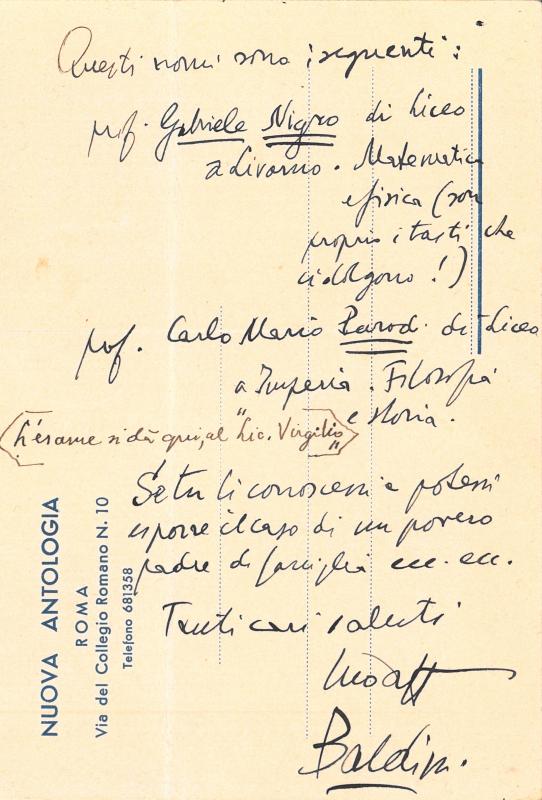 Questi nomi sono i seguenti:
prof. Gabriele Nigro di Liceo
a Livorno. Matematica
e fisica (son
proprio i tasti che
ci dolgono!)
prof. Carlo Mario Parodi di Liceo
a Imperia. Filosofia
e storia.
L'esame si dà qui, al "Lic. Virgilio"
Se tu li conoscessi e potessi
esporre il caso di un povero
padre di famiglia ecc. ecc.
Tanti cari saluti
tuo aff
Baldini.
NUOVA ANTOLOGIA
ROMA
Via del Collegio Romano N. 10
Telefono 681358